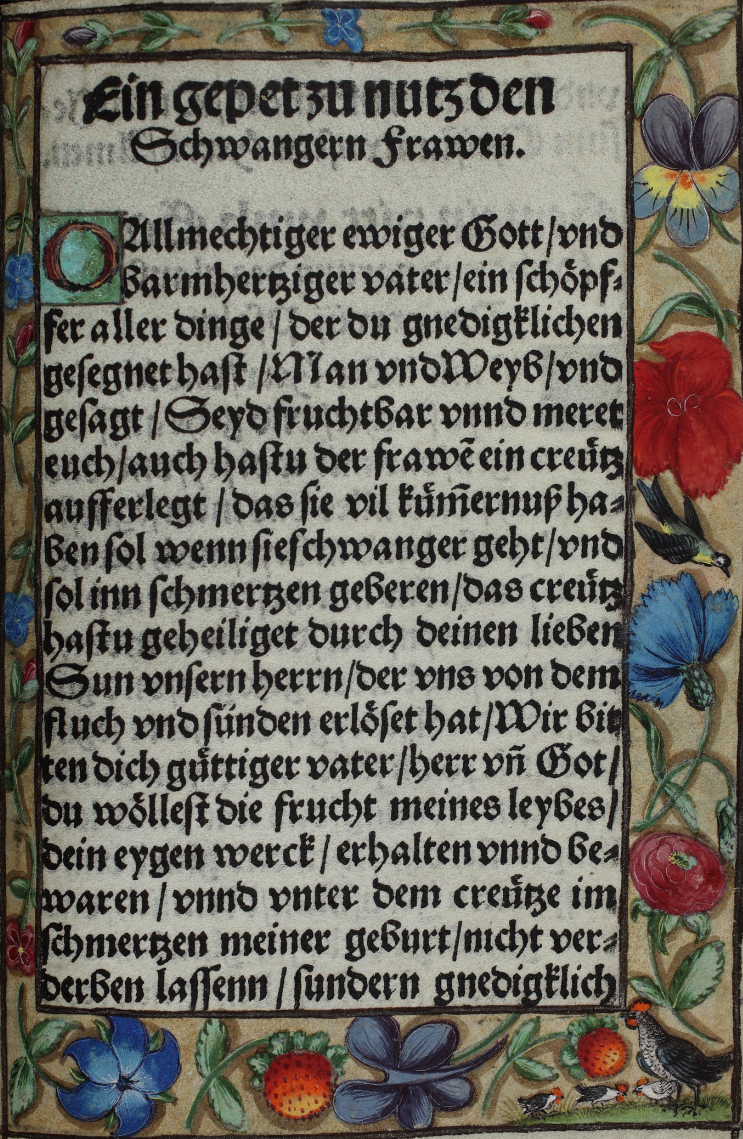 Ein gepet zu nutz den
Schwangern Frawen.
O Allmechtiger ewiger Gott/vnd
Barmhertziger vater/ein schöpf⸗
fer aller dinge / der du gnedigklichen
gesegnet hast / Man vnd Weyb/vnd
gesagt / Seyd fruchtbar vnnd meret
euch/auch hastu der frawē ein creütz
aufferlegt / das sie vil küm̄ernuß ha⸗
ben sol wenn sie schwanger geht/vnd
sol inn schmertzen geberen/das creütz
hastu geheiliget durch deinen lieben
Sun vnsern herrn/der vns von dem
fluch vnd sünden erlöset hat/Wir bit
ten dich güttiger vater/herr vn̄ Got/
du wöllest die frucht meines leybes/
dein eygen werck / erhalten vnnd be⸗
waren / vnnd vnter dem creütze im
schmertzen meiner geburt/nicht ver⸗
derben lassenn / sundern gnedigklich